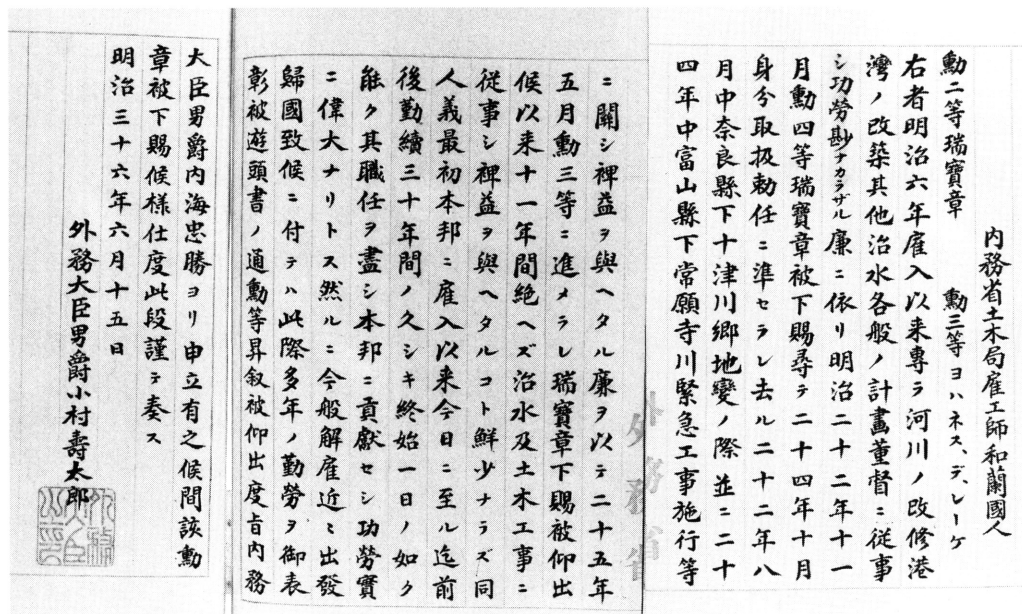 内務省土木局雇工師和蘭國人
勳二等瑞寶章　勳三等ヨハネス、デ、レーケ
右者明治六年雇入以来專ラ河川ノ改修港
灣ノ改築其他治水各般ノ計畫董督ニ從事
シ功勞尠ナカラザル廉ニ依リ明治二十二年十一
月勳四等瑞寶章被下賜尋テ二十四年十月
身分取扱勅任ニ準セラレ去ル二十二年八
月中奈良縣下十津川郷地變ノ際並ニ二十
四年中富山縣下常願寺川緊急工事施行等
ニ關シ裨益ヲ與ヘタル廉ヲ以テ二十五年
五月勳三等ニ進メラレ瑞寶章下賜被仰出
候以来十一年間絶ヘズ治水及土木工事ニ
從事シ裨益ヲ與ヘタルコト鮮少ナラズ同
人義最初本邦ニ雇入以来今日ニ至ル迄前
後勤續三十年間ノ久シキ終始一日ノ如ク
能ク其職任ヲ盡シ本邦ニ貢獻セシ功勞實
ニ偉大ナリトス然ルニ今般解雇近々出發
歸國致候ニ付テハ此際多年ノ勤勞ヲ御表
彰被遊頭書ノ通勳等昇叙被仰出度旨内務
大臣男爵内海忠勝ヨリ申立有之候間該勳
章被下賜候様仕度此段謹テ奏ス
明治三十六年六月十五日
外務大臣男爵小村壽太郎
外務省